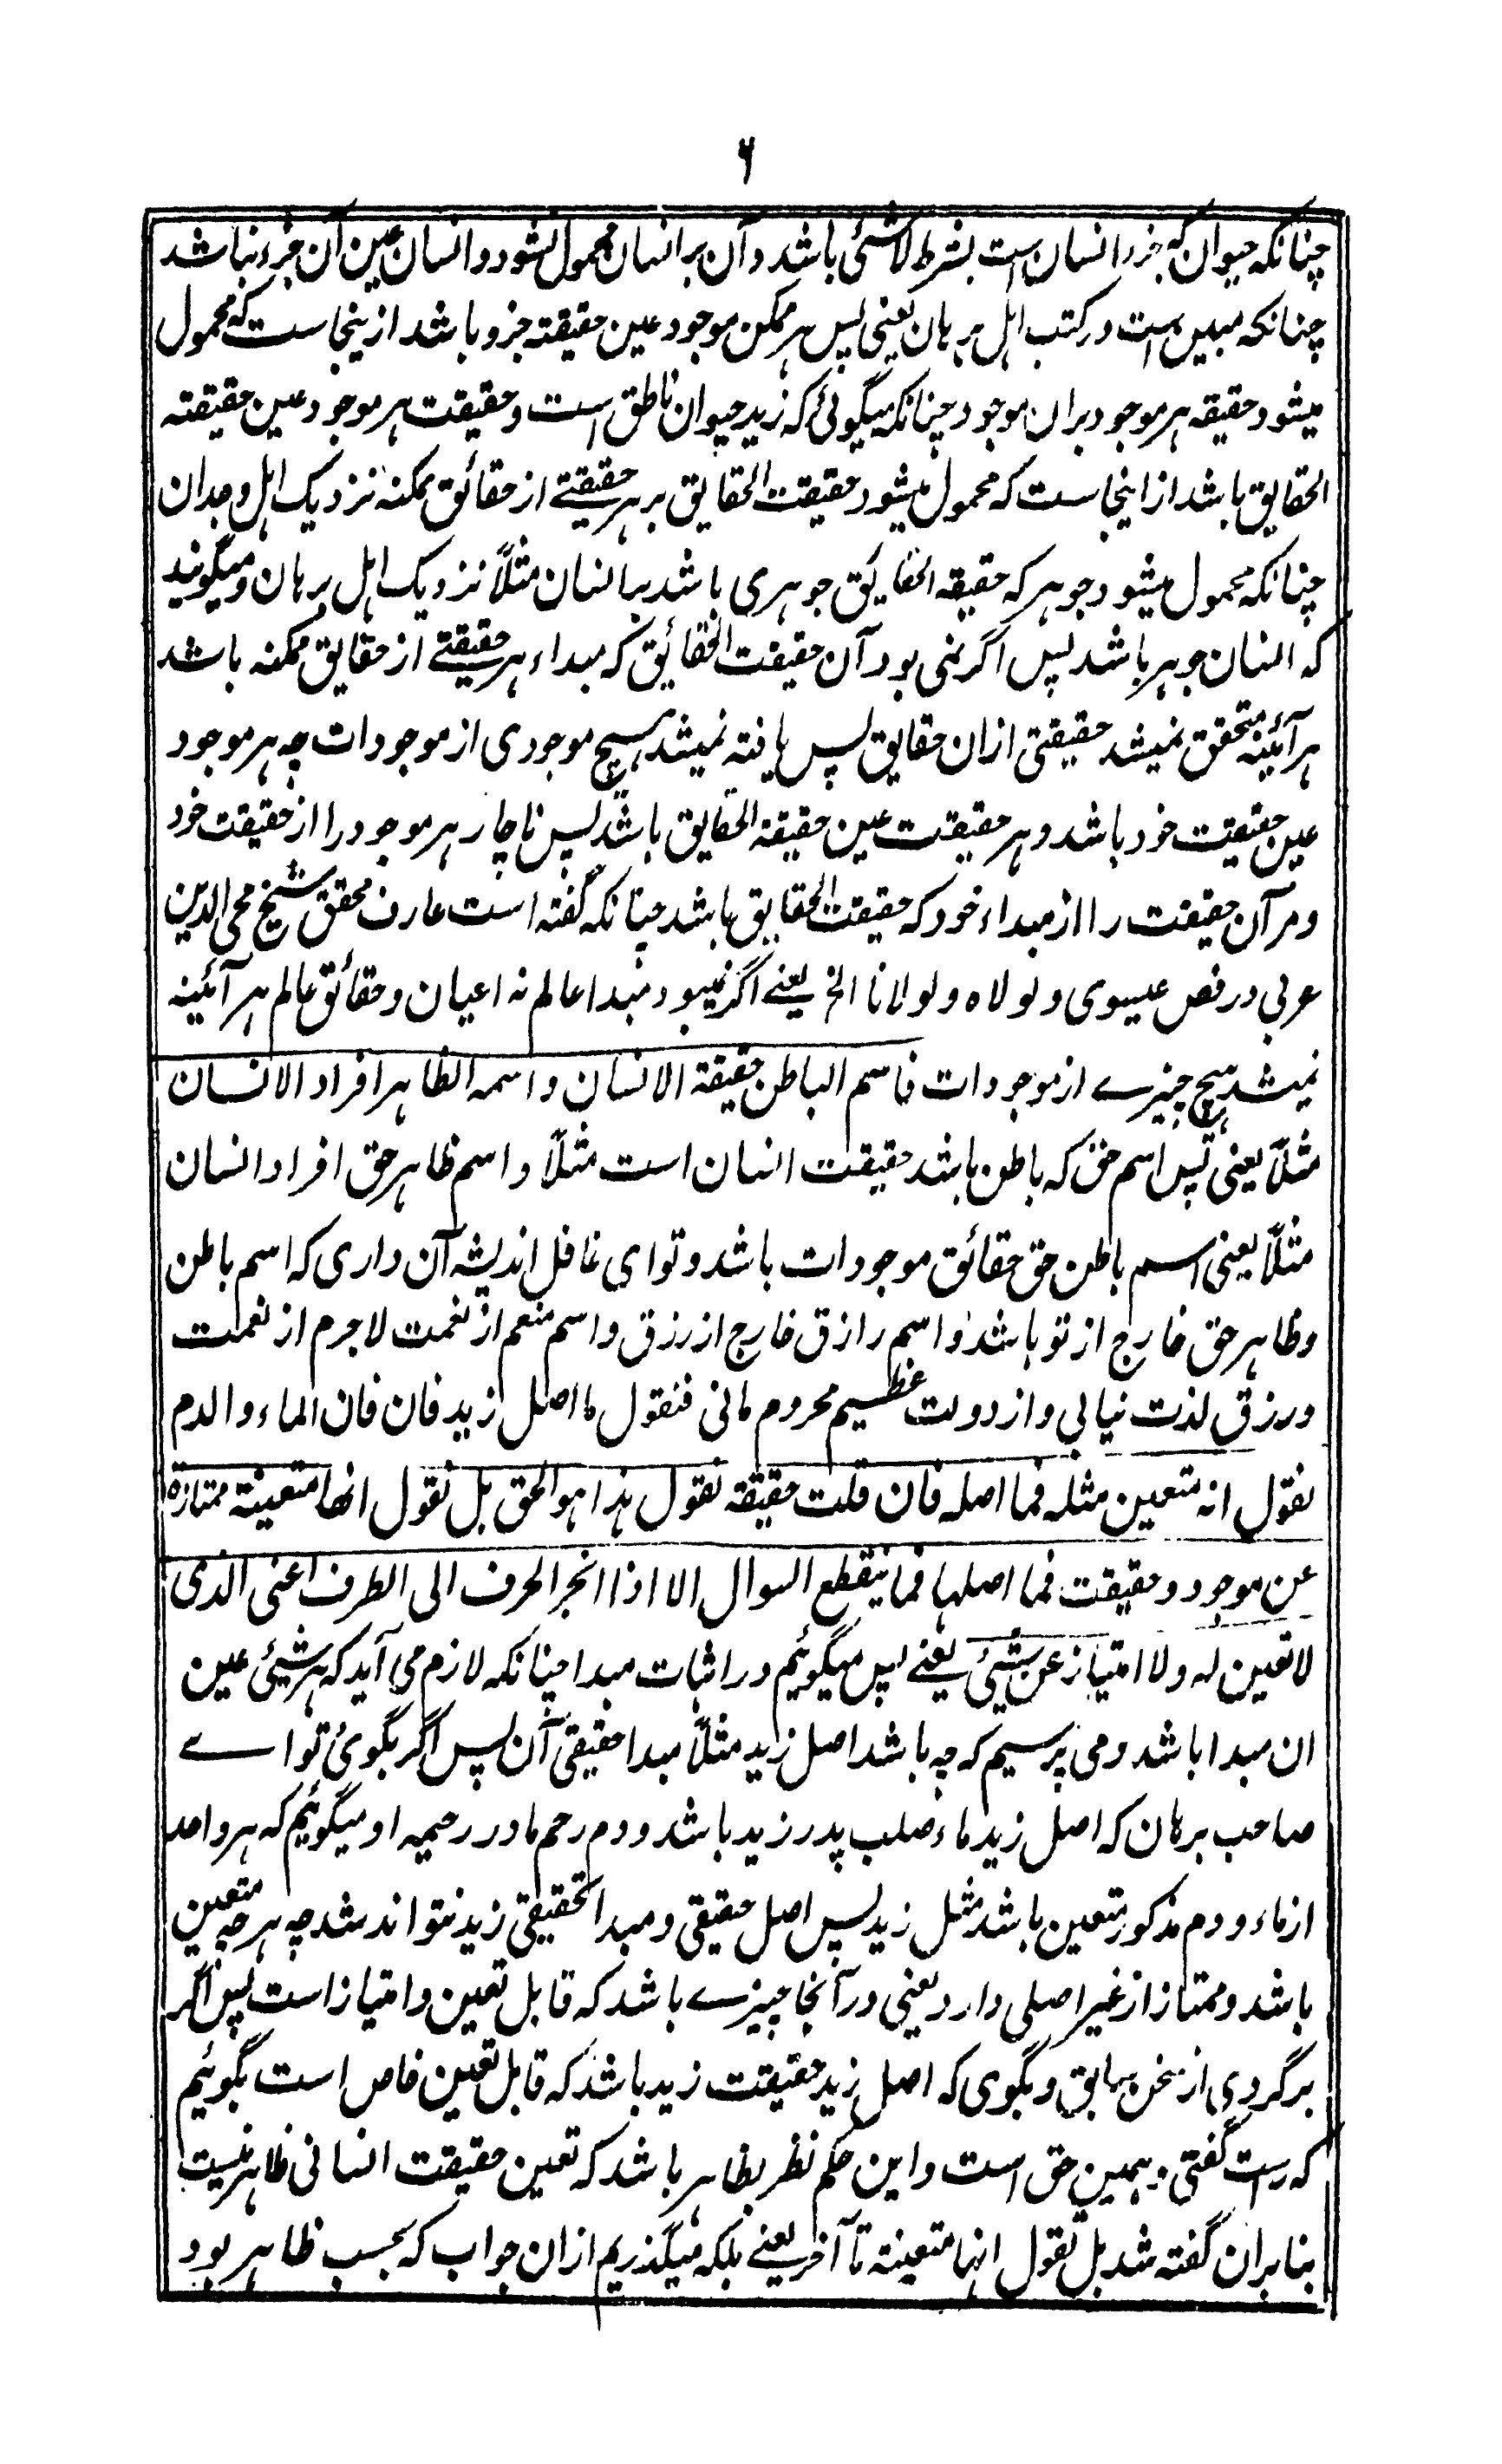 ۶
چنانکه حیوان که جزء انسان است بشرط لاشئی باشد و آن بر انسان محمول نشود و انسان عین آن جزء نباشد
چنانکه مبین است در کتب اهل برهان یعنی پس هر ممکن موجود عین حقیقته جزو باشد ازینجاست که محمول
میشود حقیقه هر موجود بران موجود چنانکه میگوئی که زید حیوان ناطق است و حقیقت هر موجود عین حقیقته
الحقایق باشد از اینجاست که محمول میشود حقیقت الحقایق بر هر حقیقتے از حقائق ممکنه نزدیک اهل وجدان
چنانکه محمول میشود جوهر که حقیقه الحقائق جوهری باشد بر انسان مثلاً نزدیک اهل برهان و میگویند
که انسان جوهر باشد پس اگر نمی بود آن حقیقت الحقائق که مبداء هر حقیقتے از حقایق ممکنه باشد
هر آئینه متحقق نمیشد حقیقتی ازان حقایق پس یافته نمیشد هیچ موجودی از موجودات چه هر موجود
عین حقیقت خود باشد و هر حقیقت عین حقیقة الحقایق باشد پس ناچار هر موجود را از حقیقت خود
و مر آن حقیقت را از مبداء خود که حقیقت الحقایق باشد چنانکه گفته است عارف محقق شیخ محی الدین
عربی در فص عیسوی و لولاه و لولانا الخ یعنے اگر نمیبود مبدا عالم نه اعیان و حقائق عالم هر آئینه
نمیشد هیچ چیزے از موجودات فاسم الباطن حقیقة الانسان و اسمه الظاهر افراد الانسان
مثلاً یعنی پس اسم حق که باطن باشد حقیقت انسان است مثلاً و اسم ظاهر حق افراد انسان
مثلاً یعنی اسم باطن حق حقائق موجودات باشد و تو ای غافل اندیشه آن داری که اسم باطن
و ظاهر حق خارج از تو باشد و اسم رازق خارج از رزق و اسم منعم از نعمت لاجرم از نعمت
و رزق لذت نیابی و از دولت عظیم محروم مانی فنقول ما اصل زید فان فان الماء و الدم
نقول انه متعین مثله فما اصله فان قلت حقیقة نقول هذا هو الحق بل نقول انها متعینة ممتازة
عن موجود و حقیقت فما اصلها فما ینقطع السوال الا اذا انجر الحرف الی الطرف اعنی الذی
لا تعین له و لا امتیاز عن شیئ یعنے پس میگوئیم در اثبات مبدا چنانکه لازم می آید که هر شیئ عین
ان مبدا باشد و می پرسیم که چه باشد اصل زید مثلاً مبدا حقیقی آن پس اگر بگوئ تو اے
صاحب برهان که اصل زید ماء صلب پدر زید باشد و دم رحم مادر رحیمه او میگوئیم که هر واحد
از ماء و دم مذکور متعین باشد مثل زید پس اصل حقیقی و مبدا تحقیقی زید نتواند شد چه هر چه متعین
باشد و ممتاز از غیر اصلی دارد یعنی در آنجا چیزے باشد که قابل تعین و امتیاز است پس اگر
برگردی از سخن سابق و بگوی که اصل زید حقیقت زید باشد که قابل تعین خاص است بگوئیم
که راست گفتی و همین حق است و این حکم نظر بظاهر باشد که تعین حقیقت انسانی ظاهر نیست
بنابران گفته شد بل نقول انها متعینة تا آخر یعنے بلکه میگذریم ازان جواب که بحسب ظاهر بود